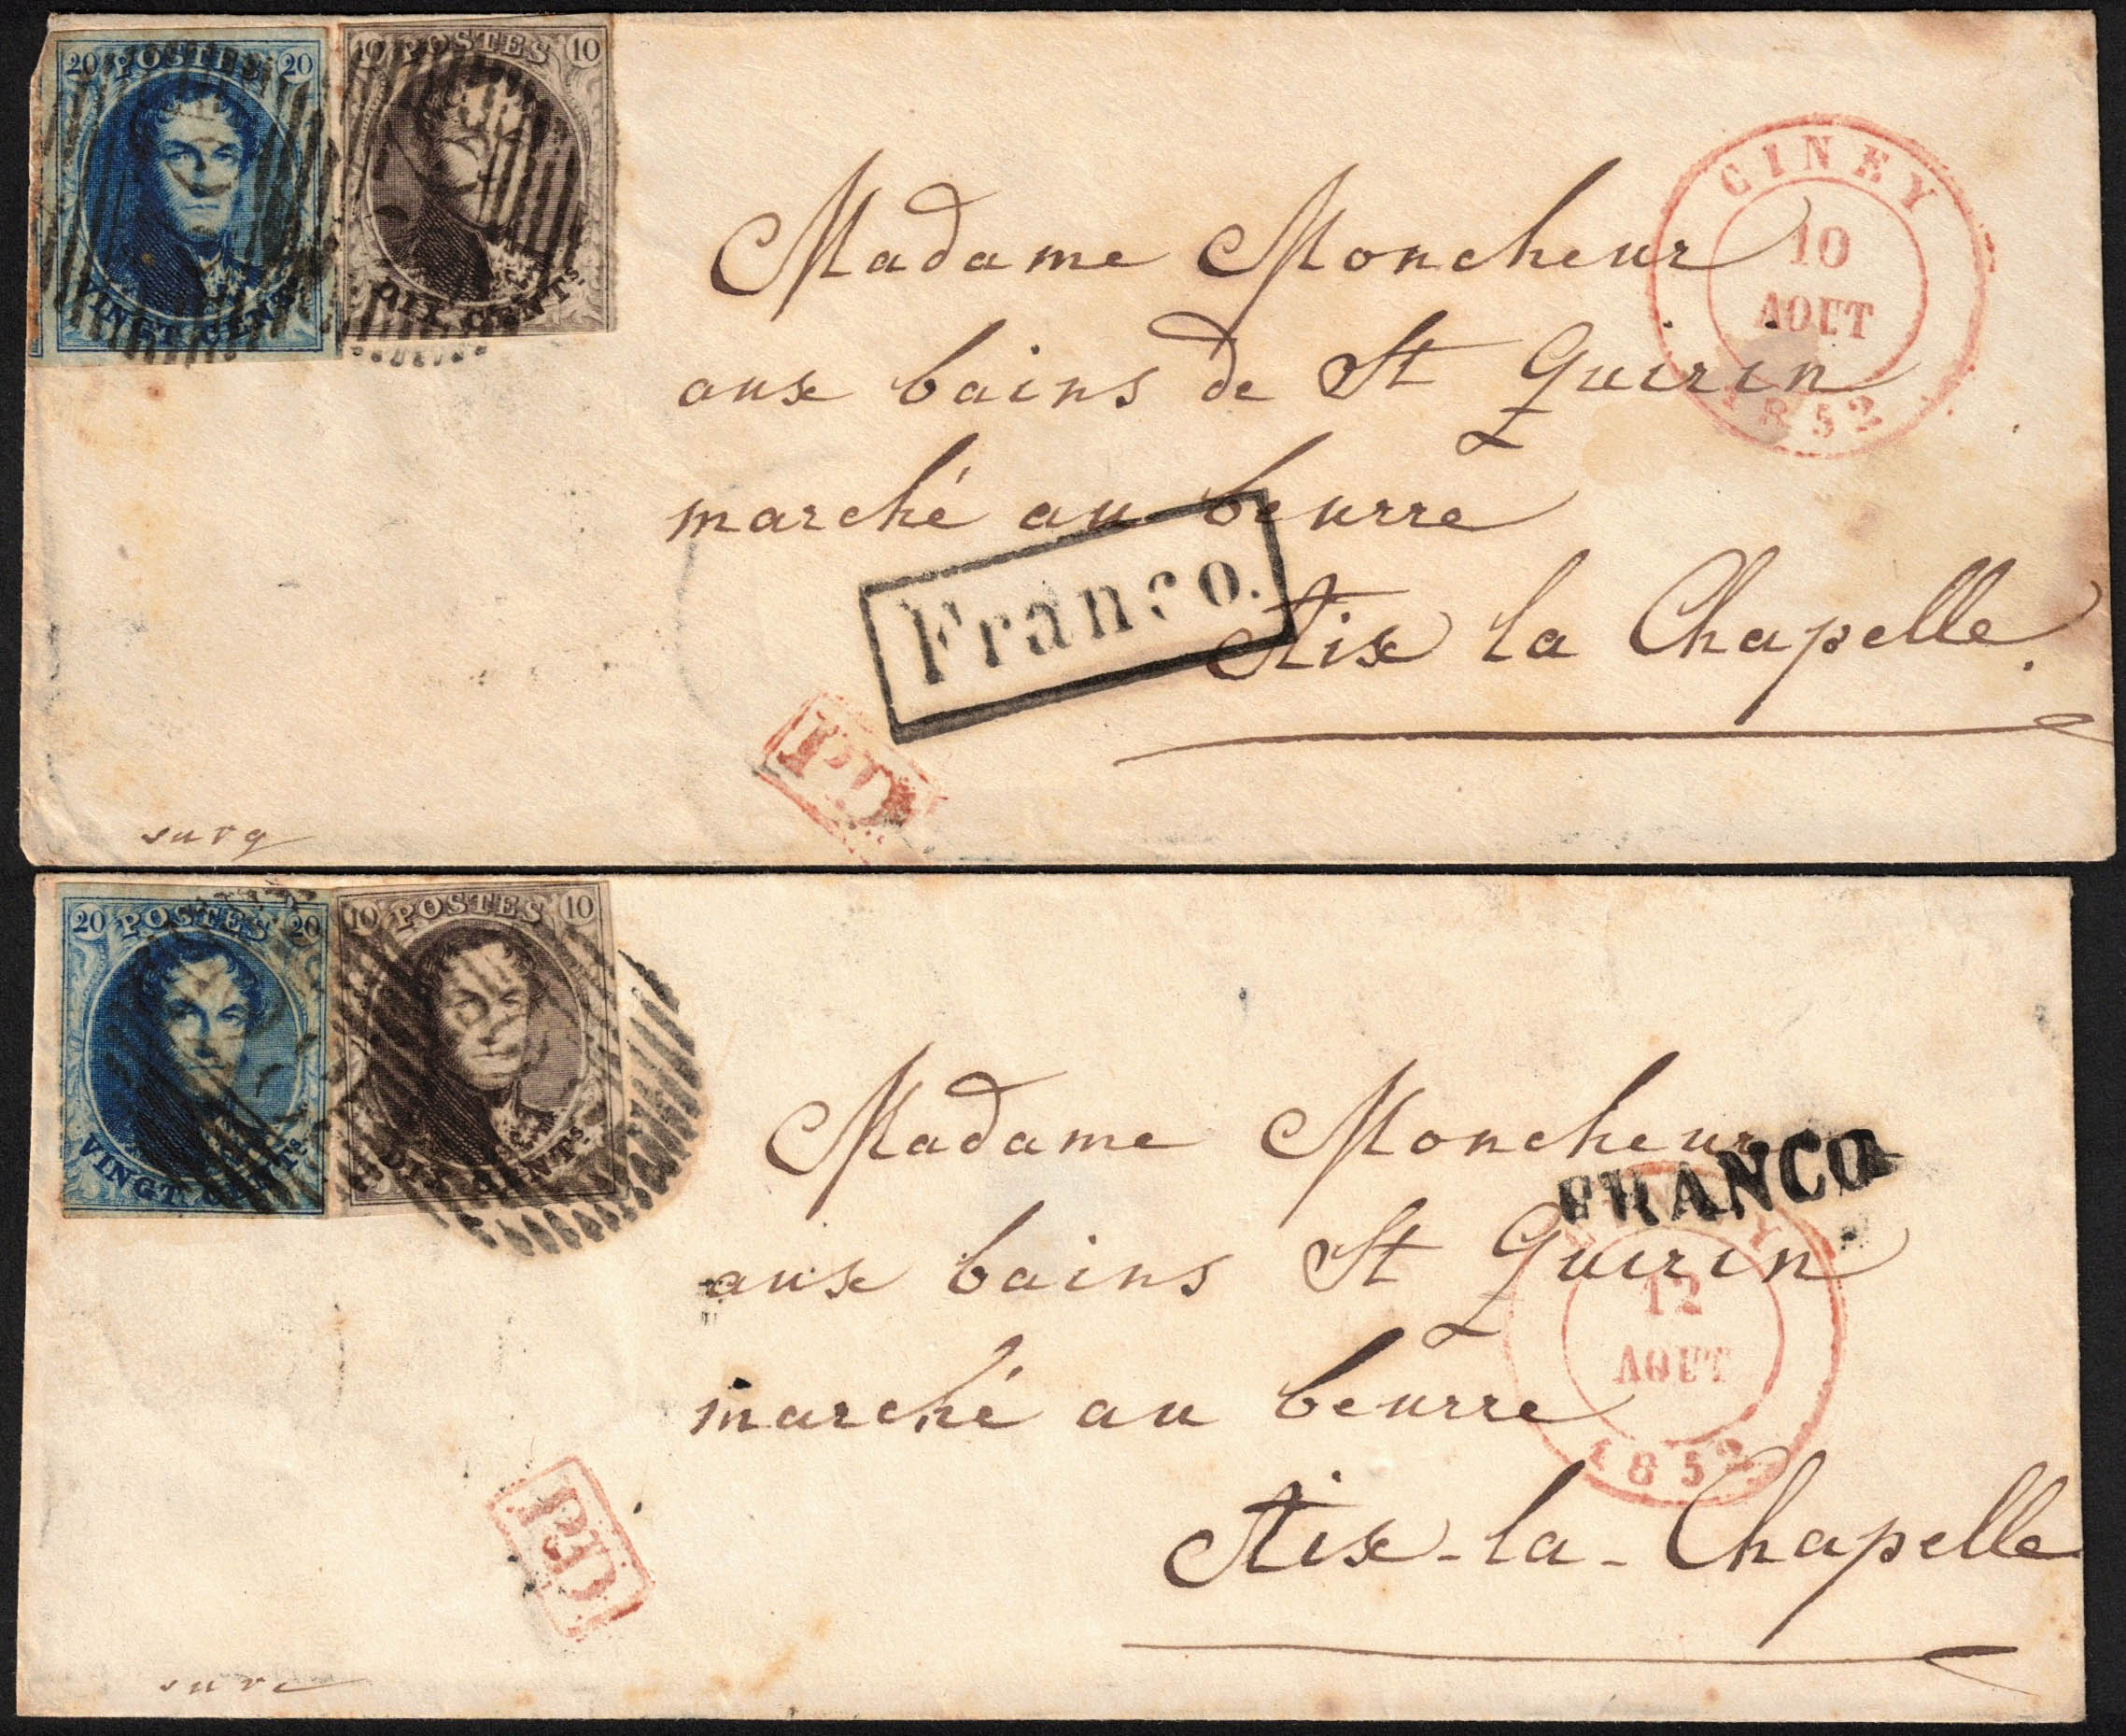 20 POSTES 20
VINGT CENTS
10 POSTES 10
DIX CENTS
CINEY
10
AOUT
1852
Madame Moncheur
aux bains de St Quirin
marché au beurre
Franco.
Aix la Chapelle.
P.D.
20 POSTES 20
VINGT CENTS
10 POSTES 10
DIX CENTS
Madame Moncheur
FRANCO
aux bains St Quirin
12
AOUT
1852
marché au beurre
Aix-la-Chapelle
P.D.